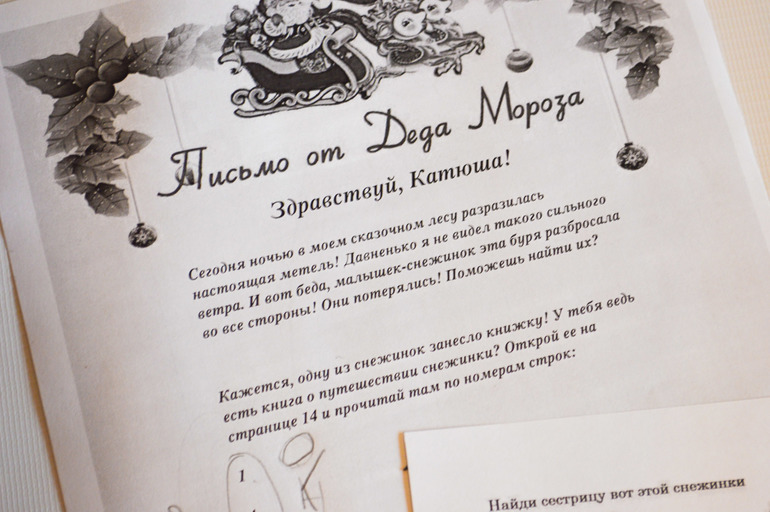 Письмо от Деда Мороза
Здравствуй, Катюша!
Сегодня ночью в моем сказочном лесу разразилась
настоящая метель! Давненько я не видел такого сильного
ветра. И вот беда, малышек-снежинок эта буря разбросала
во все стороны! Они потерялись! Поможешь найти их?
Кажется, одну из снежинок занесло книжку! У тебя ведь
есть книга о путешествии снежинки? Открой ее на
странице 14 и прочитай там по номерам строк:
1
Найди сестрицу вот этой снежинки